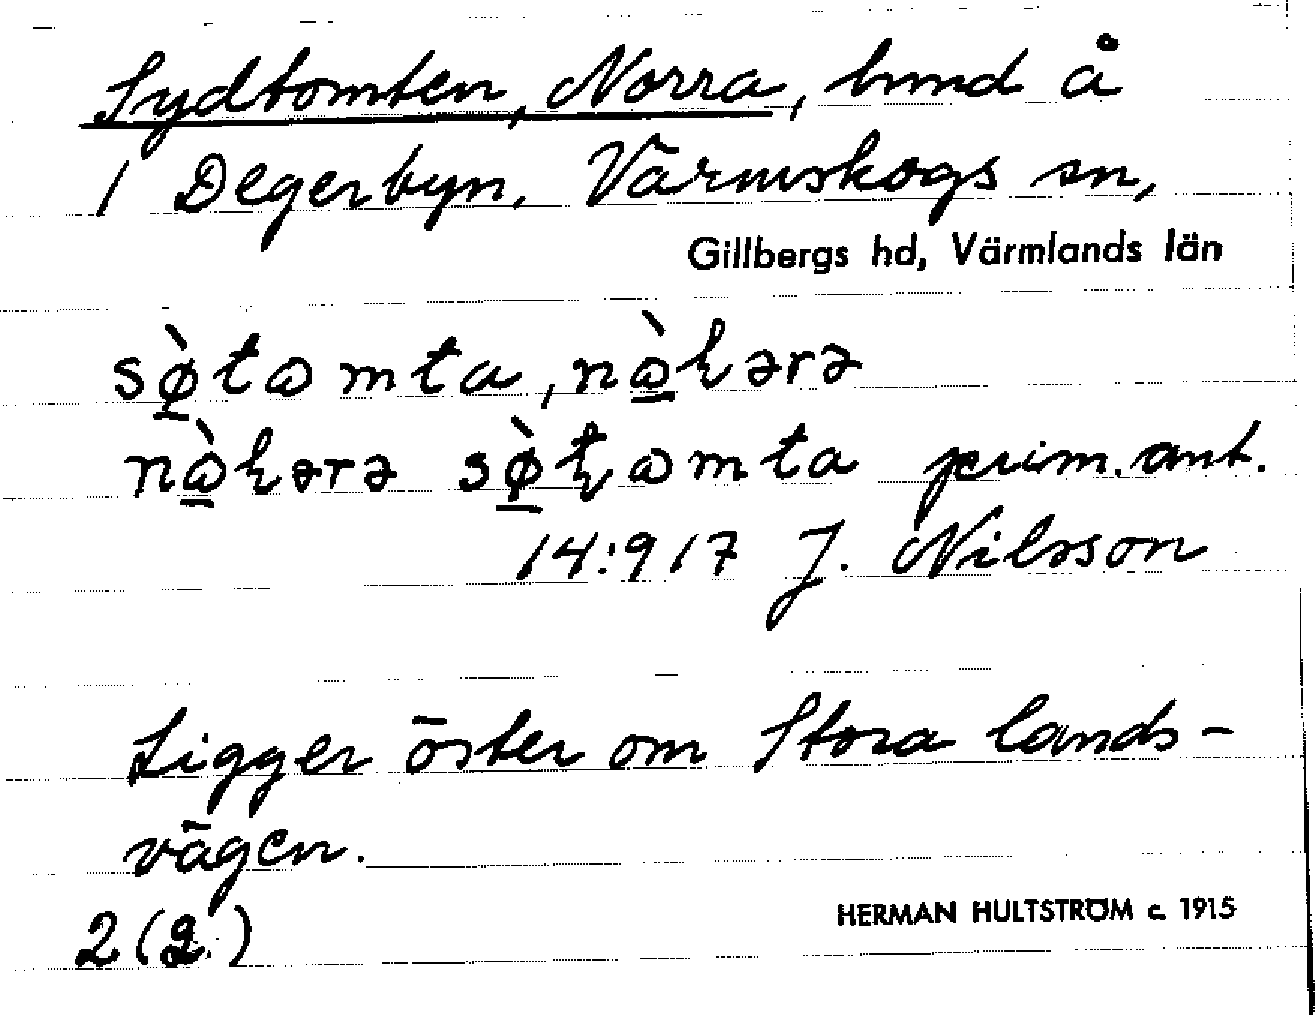 Sydtomten, Norra, hmd å
1 Degerbyn, Värmskogs sn,
Gillbergs hd, Värmlands län
prim. ant.
14:917 J. Nilsson
Ligger öster om Stora lands-
vägen.
2 (2.)
HERMAN HULTSTRÖM c. 1915